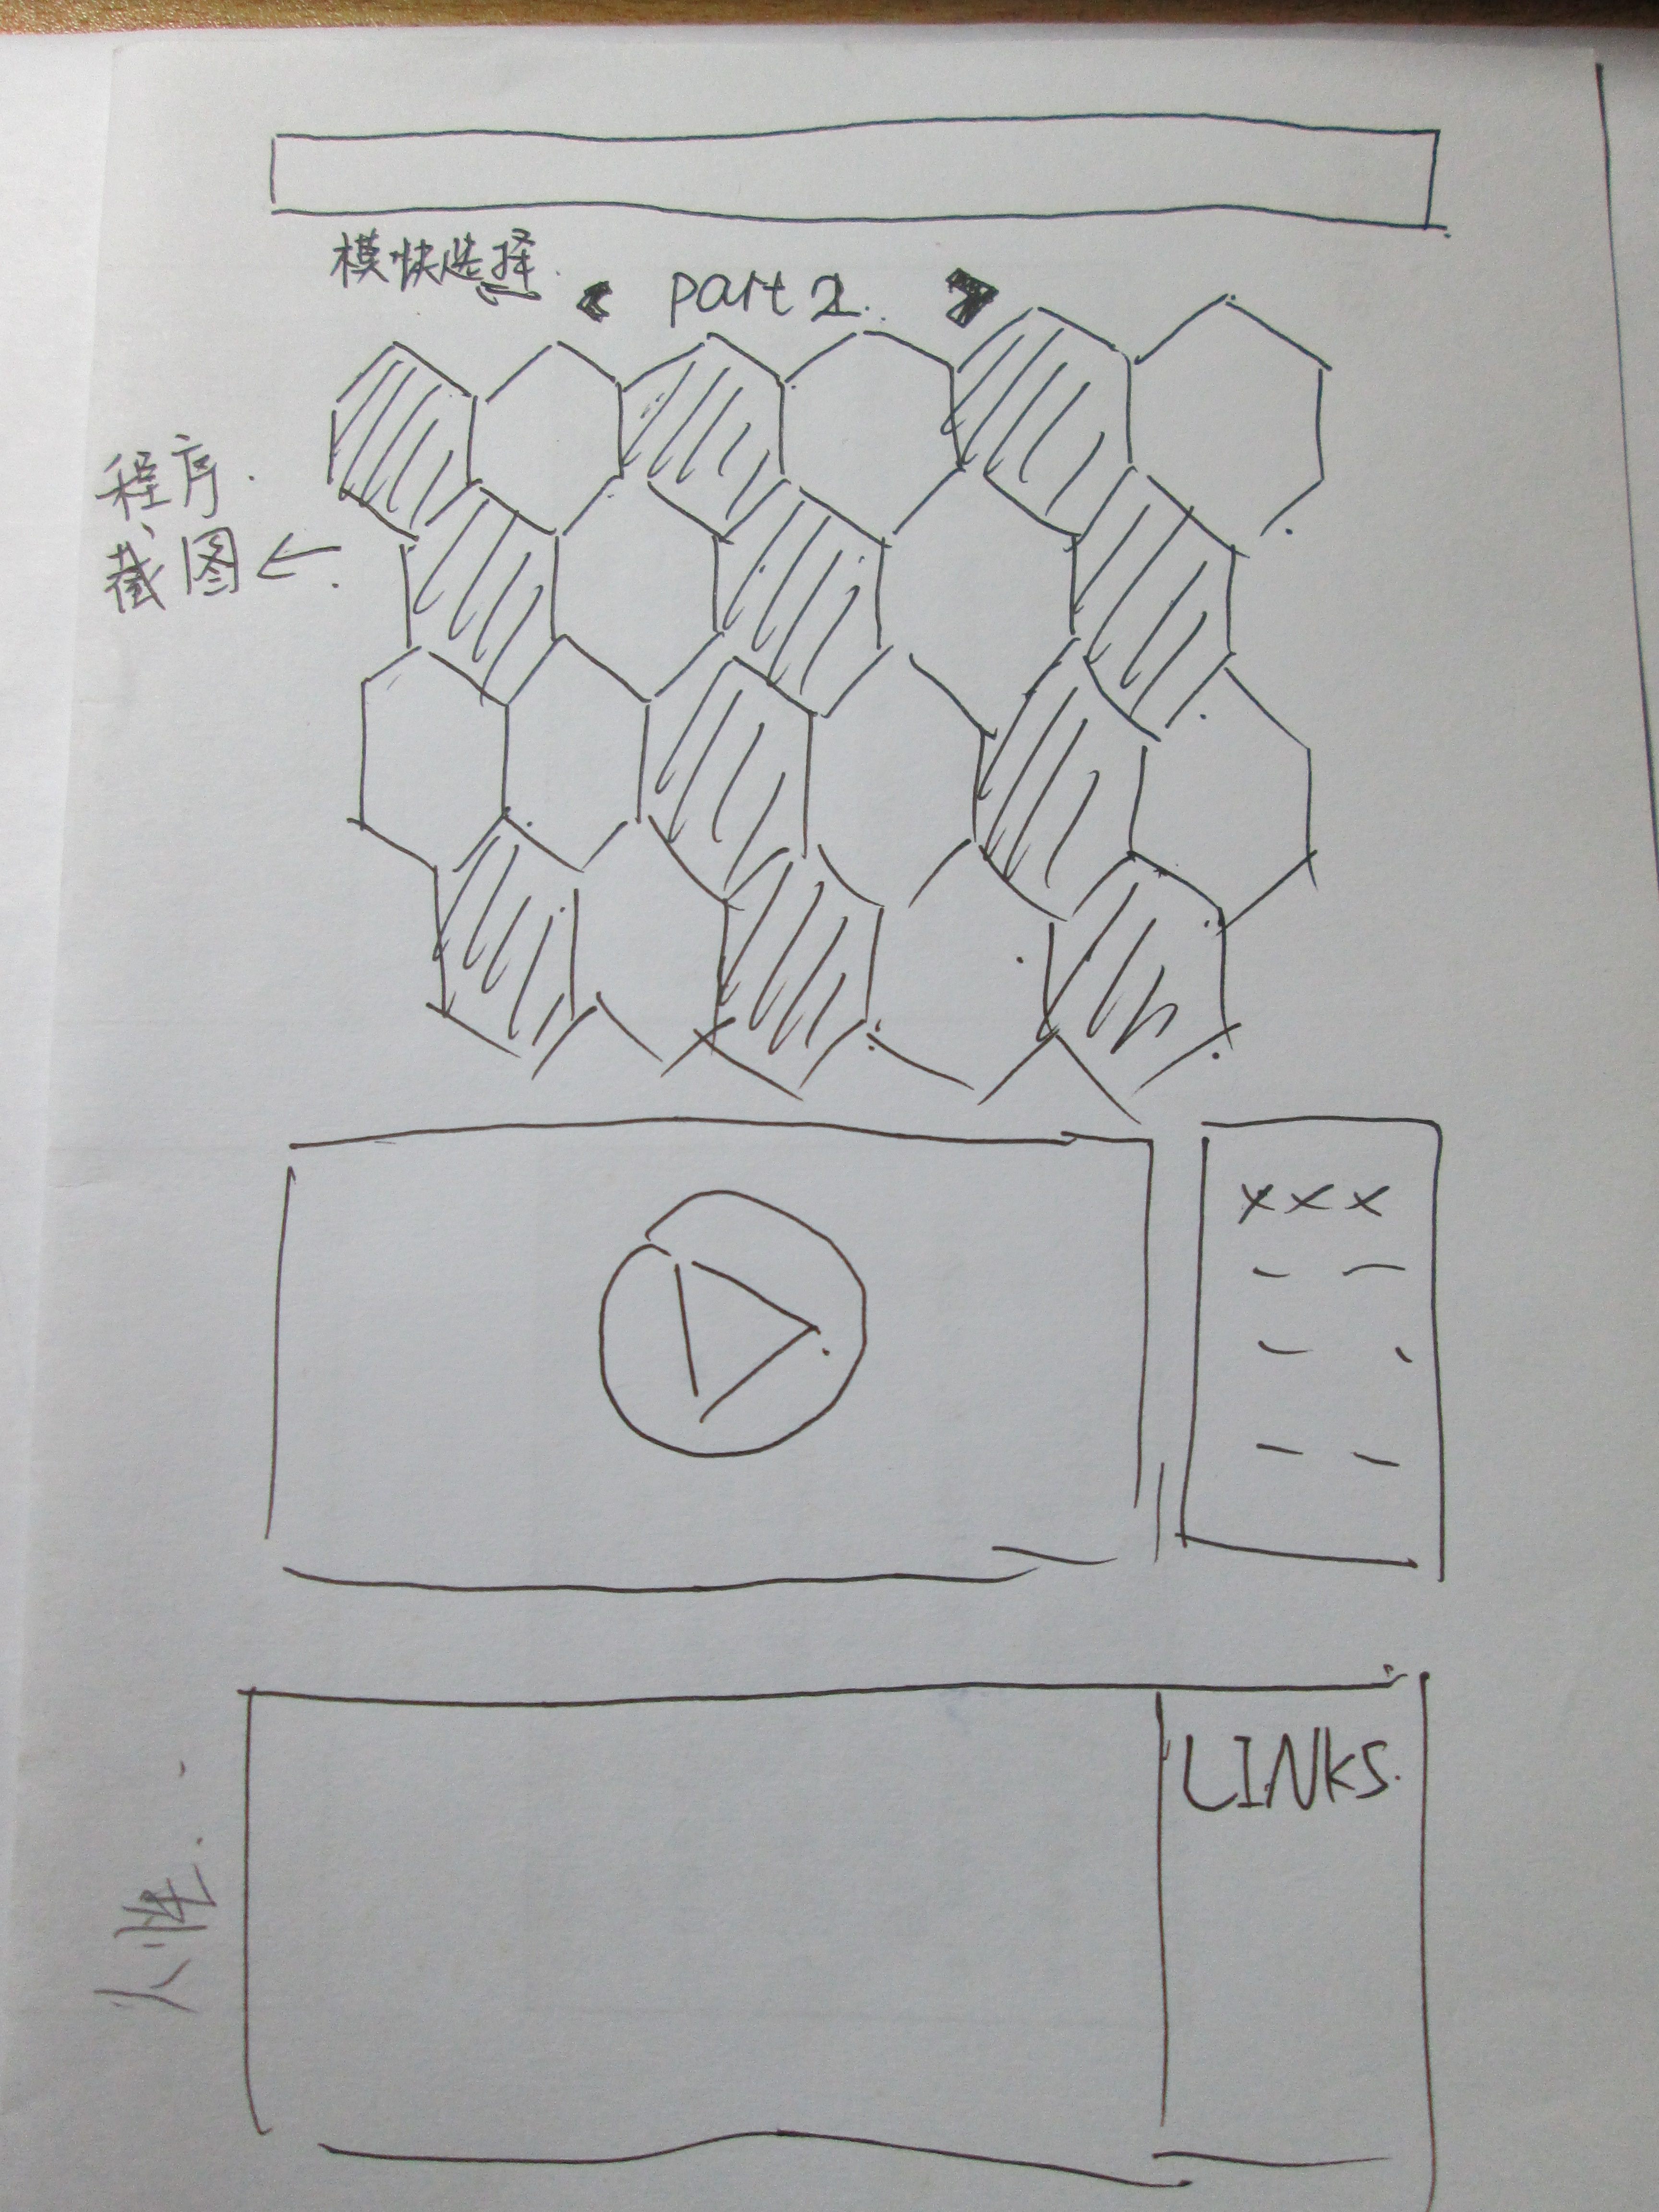 模快选择
part 2
程序
截图
XXX
LINKS